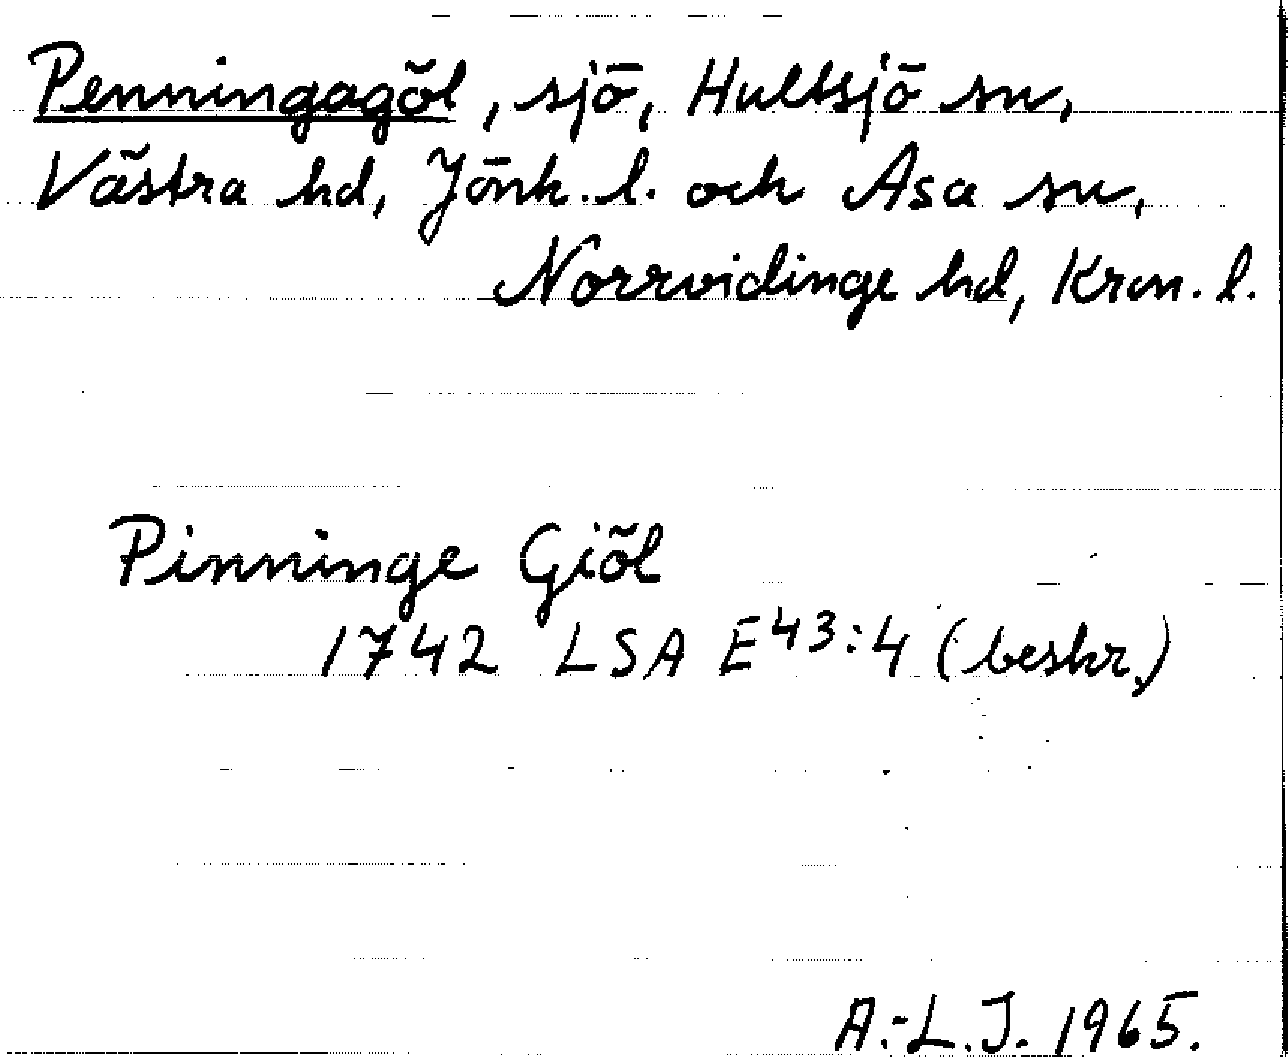 Penningagöl, sjö, Hultsjö sn,
Västra hd, Jönk. l. och Asa sn,
Norrvidinge hd, Kron. l.
Pinninge Giöl
1742 LSA E43:4 (beskr.)
A.-L.J. 1965.